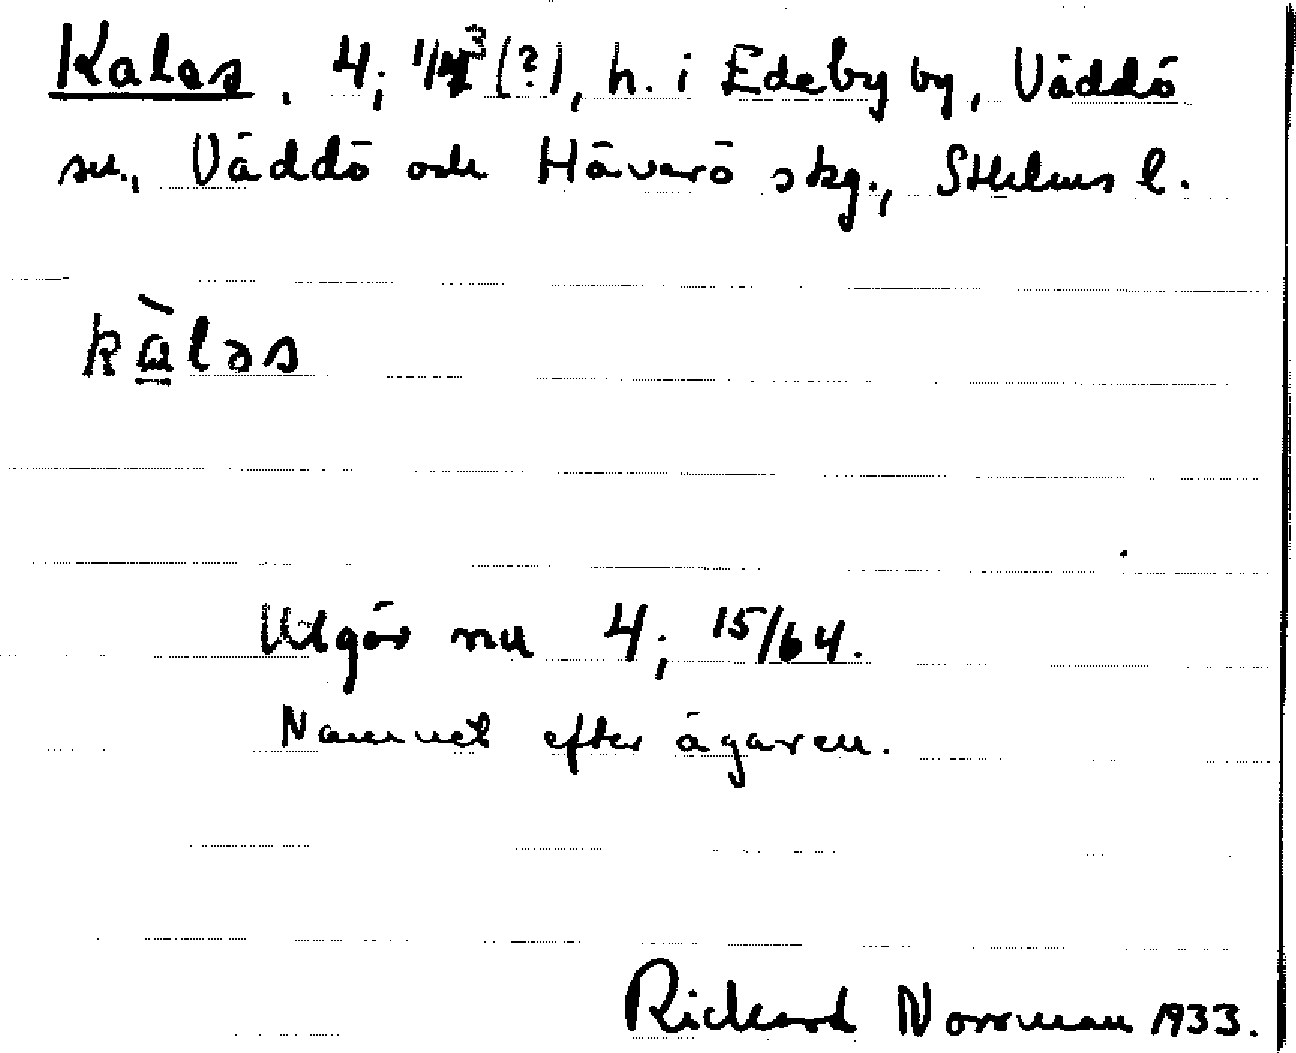 Kales, 4; 1/4³ (?), h. i Edeby by, Väddö
sn., Väddö och Häverö skg., Sthlms l.
kàləs
Utgör nu 4; 15/64.
Namnet efter ägaren.
Rickard Norrman 1933.